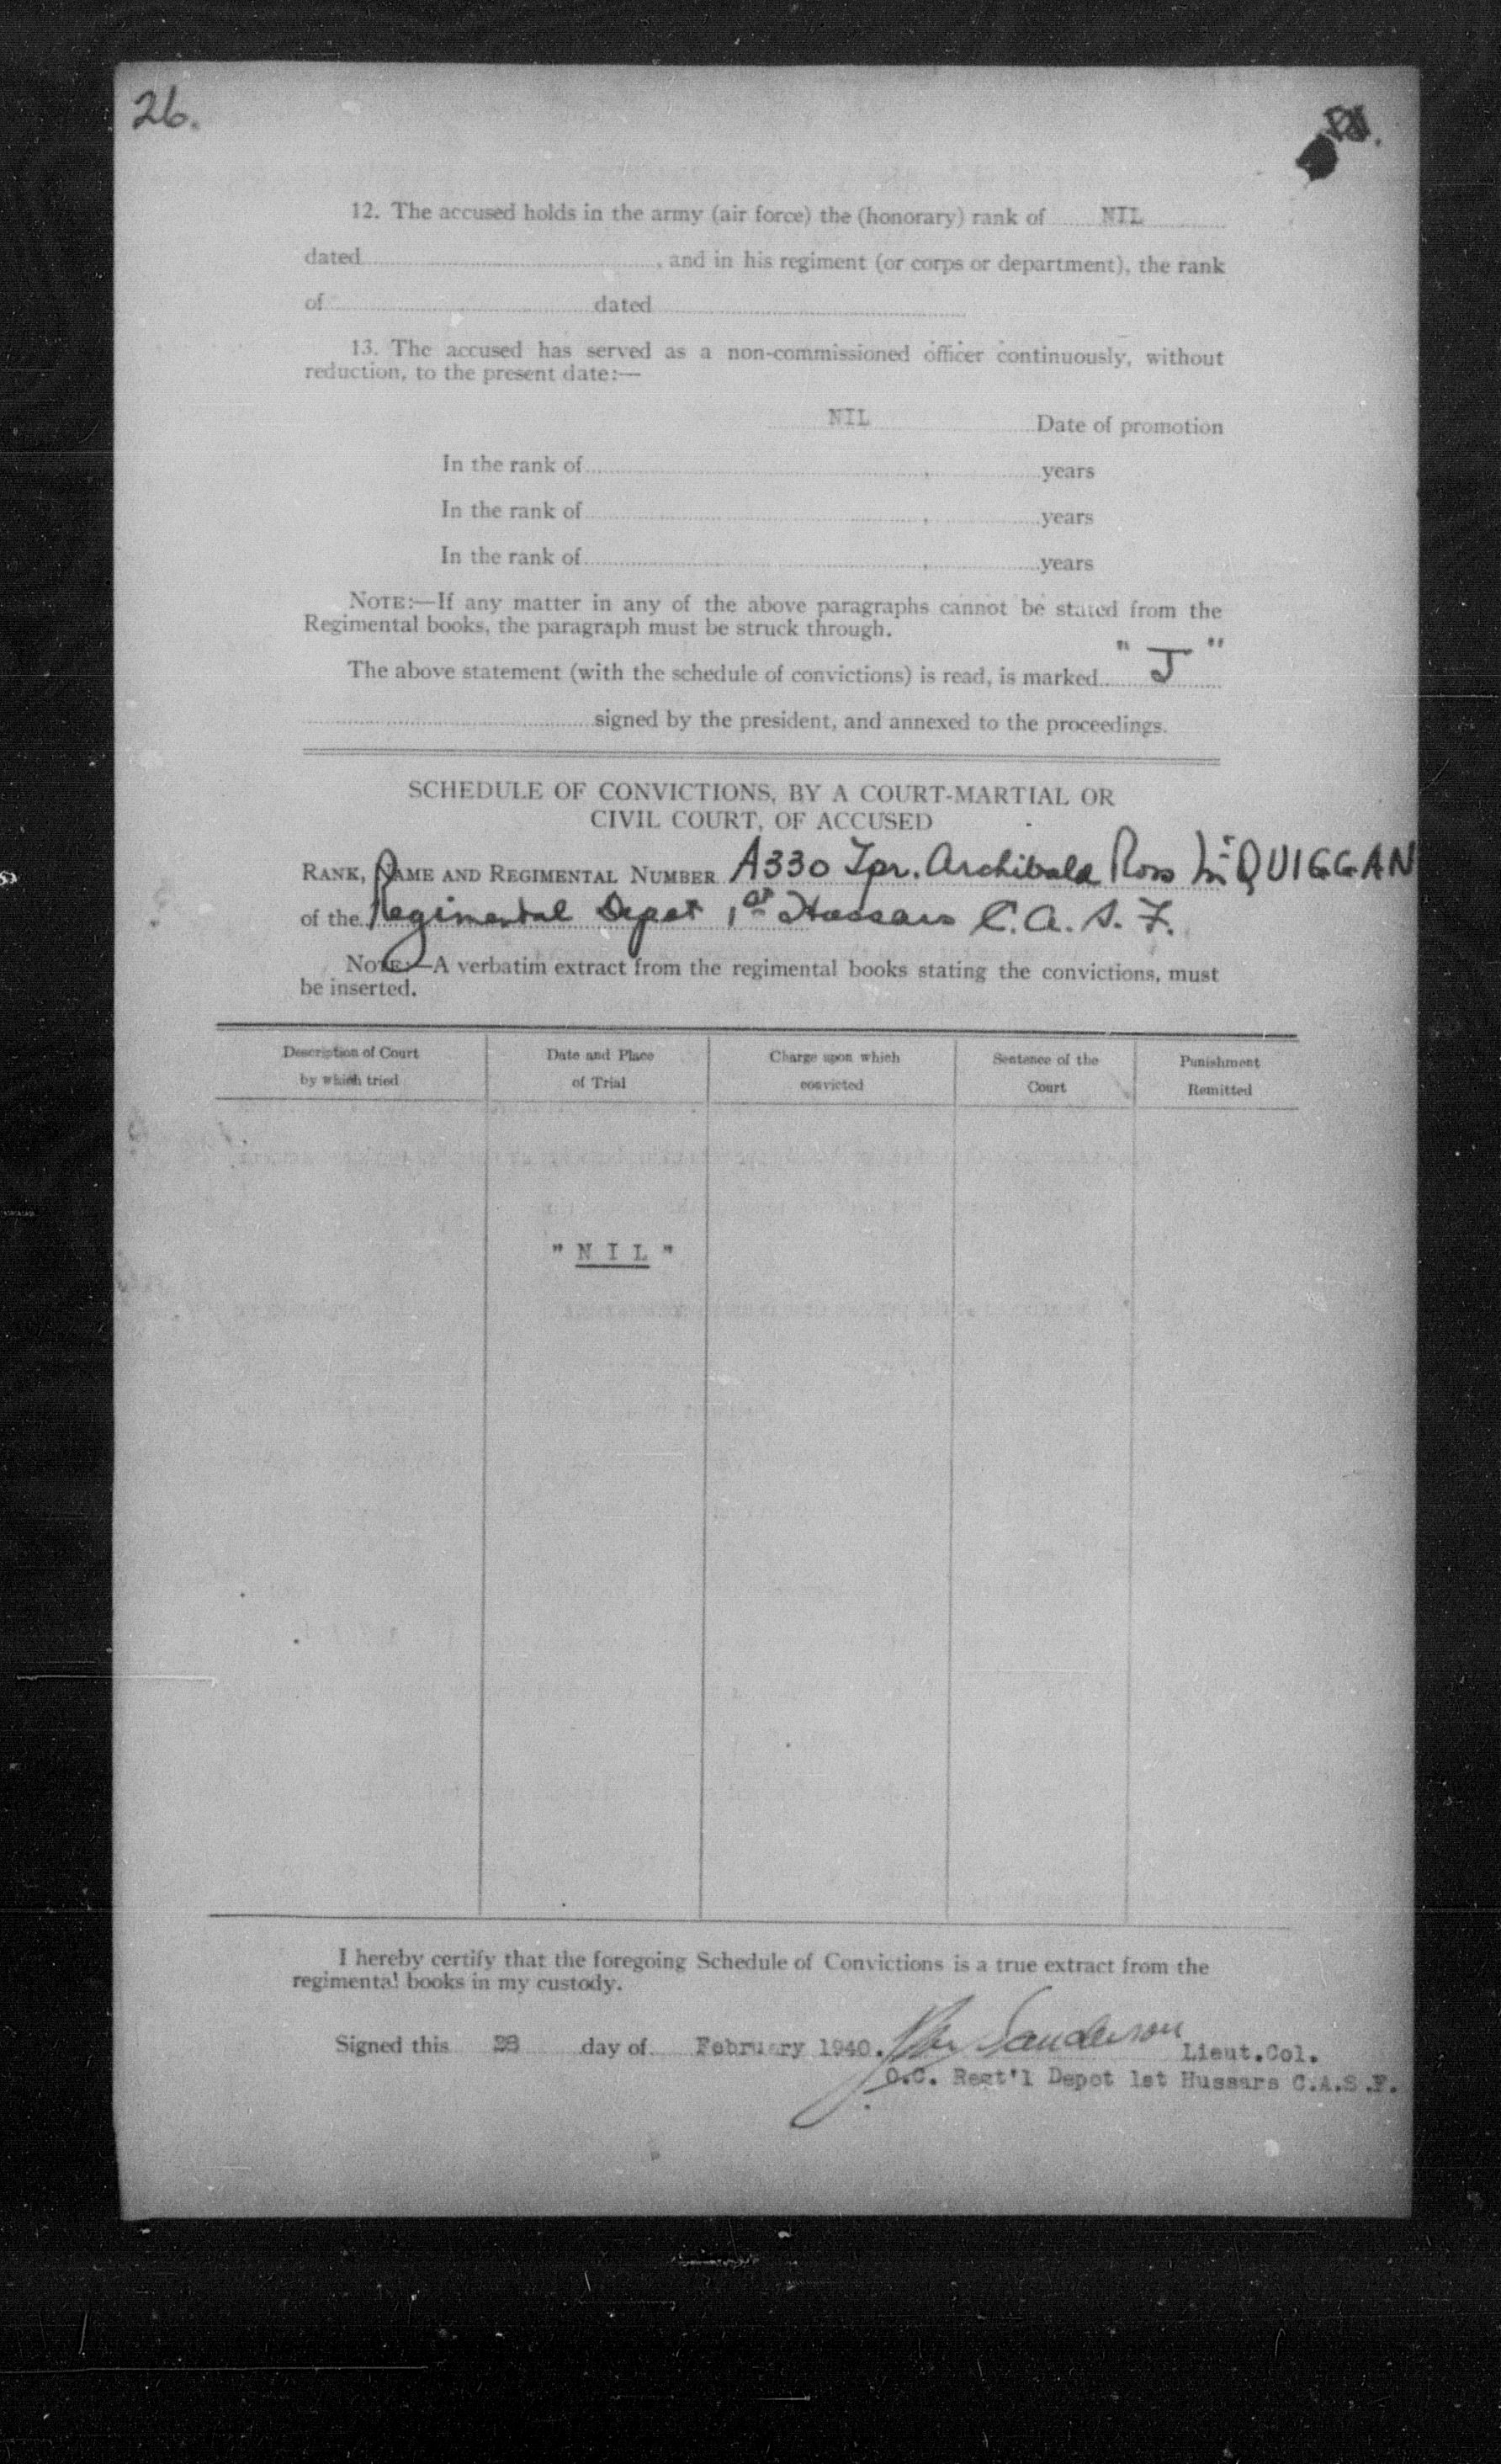 26.
12. The accused holds in the army (air force) the (honorary) rank of NIL
dated , and in his regiment (or corps or department), the rank
of dated
13. The accused has served as a non-commissioned officer continuously, without
reduction, to the present date:—
NIL Date of promotion
In the rank of , years
In the rank of , years
In the rank of , years
NOTE:—If any matter in any of the above paragraphs cannot be stated from the
Regimental books, the paragraph must be struck through.
The above statement (with the schedule of convictions) is read, is marked "J"
signed by the president, and annexed to the proceedings.
SCHEDULE OF CONVICTIONS, BY A COURT-MARTIAL OR
CIVIL COURT, OF ACCUSED
RANK, NAME AND REGIMENTAL NUMBER A330 Tpr. Archibald Ross McQUIGGAN
of the Regimental Depot 1st Hussars C.A.S.F.
NOTE:—A verbatim extract from the regimental books stating the convictions, must
be inserted.
Description of Court by which tried
Date and Place of Trial
Charge upon which convicted
Sentence of the Court
Punishment Remitted
"NIL"
I hereby certify that the foregoing Schedule of Convictions is a true extract from the
regimental books in my custody.
Signed this 28 day of February 1940. Sanderson Lieut.Col.
O.C. Regt'l Depot 1st Hussars C.A.S.F.